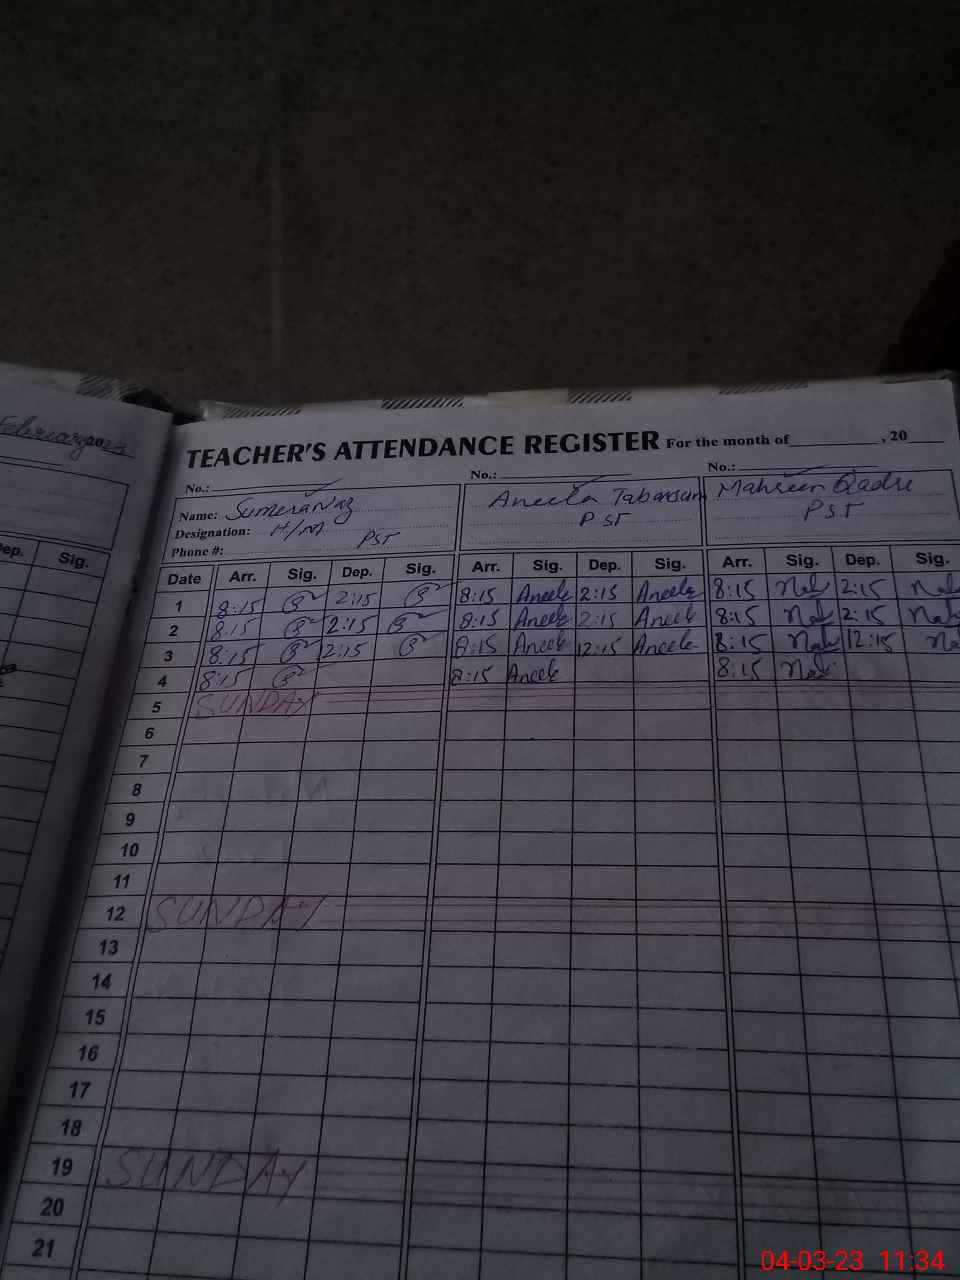 February 2023
TEACHER'S ATTENDANCE REGISTER For the month of , 20
No.: No.: No.:
Name: Sumera Naz Aneela Tabassum Mahreen Qadri
Designation: H/M PST PST
Phone #: PST
ep. Sig.
Date Arr. Sig. Dep. Sig. Arr. Sig. Dep. Sig. Arr. Sig. Dep. Sig.
1 8:15 2:15 8:15 Aneela 2:15 Aneela 8:15 2:15
2 8:15 2:15 8:15 Aneela 2:15 Aneela 8:15 2:15
3 8:15 12:15 8:15 Aneela 12:15 Aneela 8:15 12:15
4 8:15 8:15 Aneela 8:15
5 SUNDAY
6
7
8
9
10
11
12 SUNDAY
13
14
15
16
17
18
19 SUNDAY
20
21
04-03-23 11:34